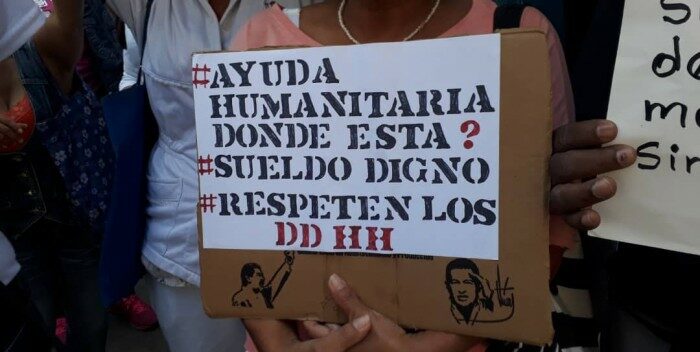 #AYUDA
HUMANITARIA
DONDE ESTA?
#SUELDO DIGNO
#RESPETEN LOS
DD HH